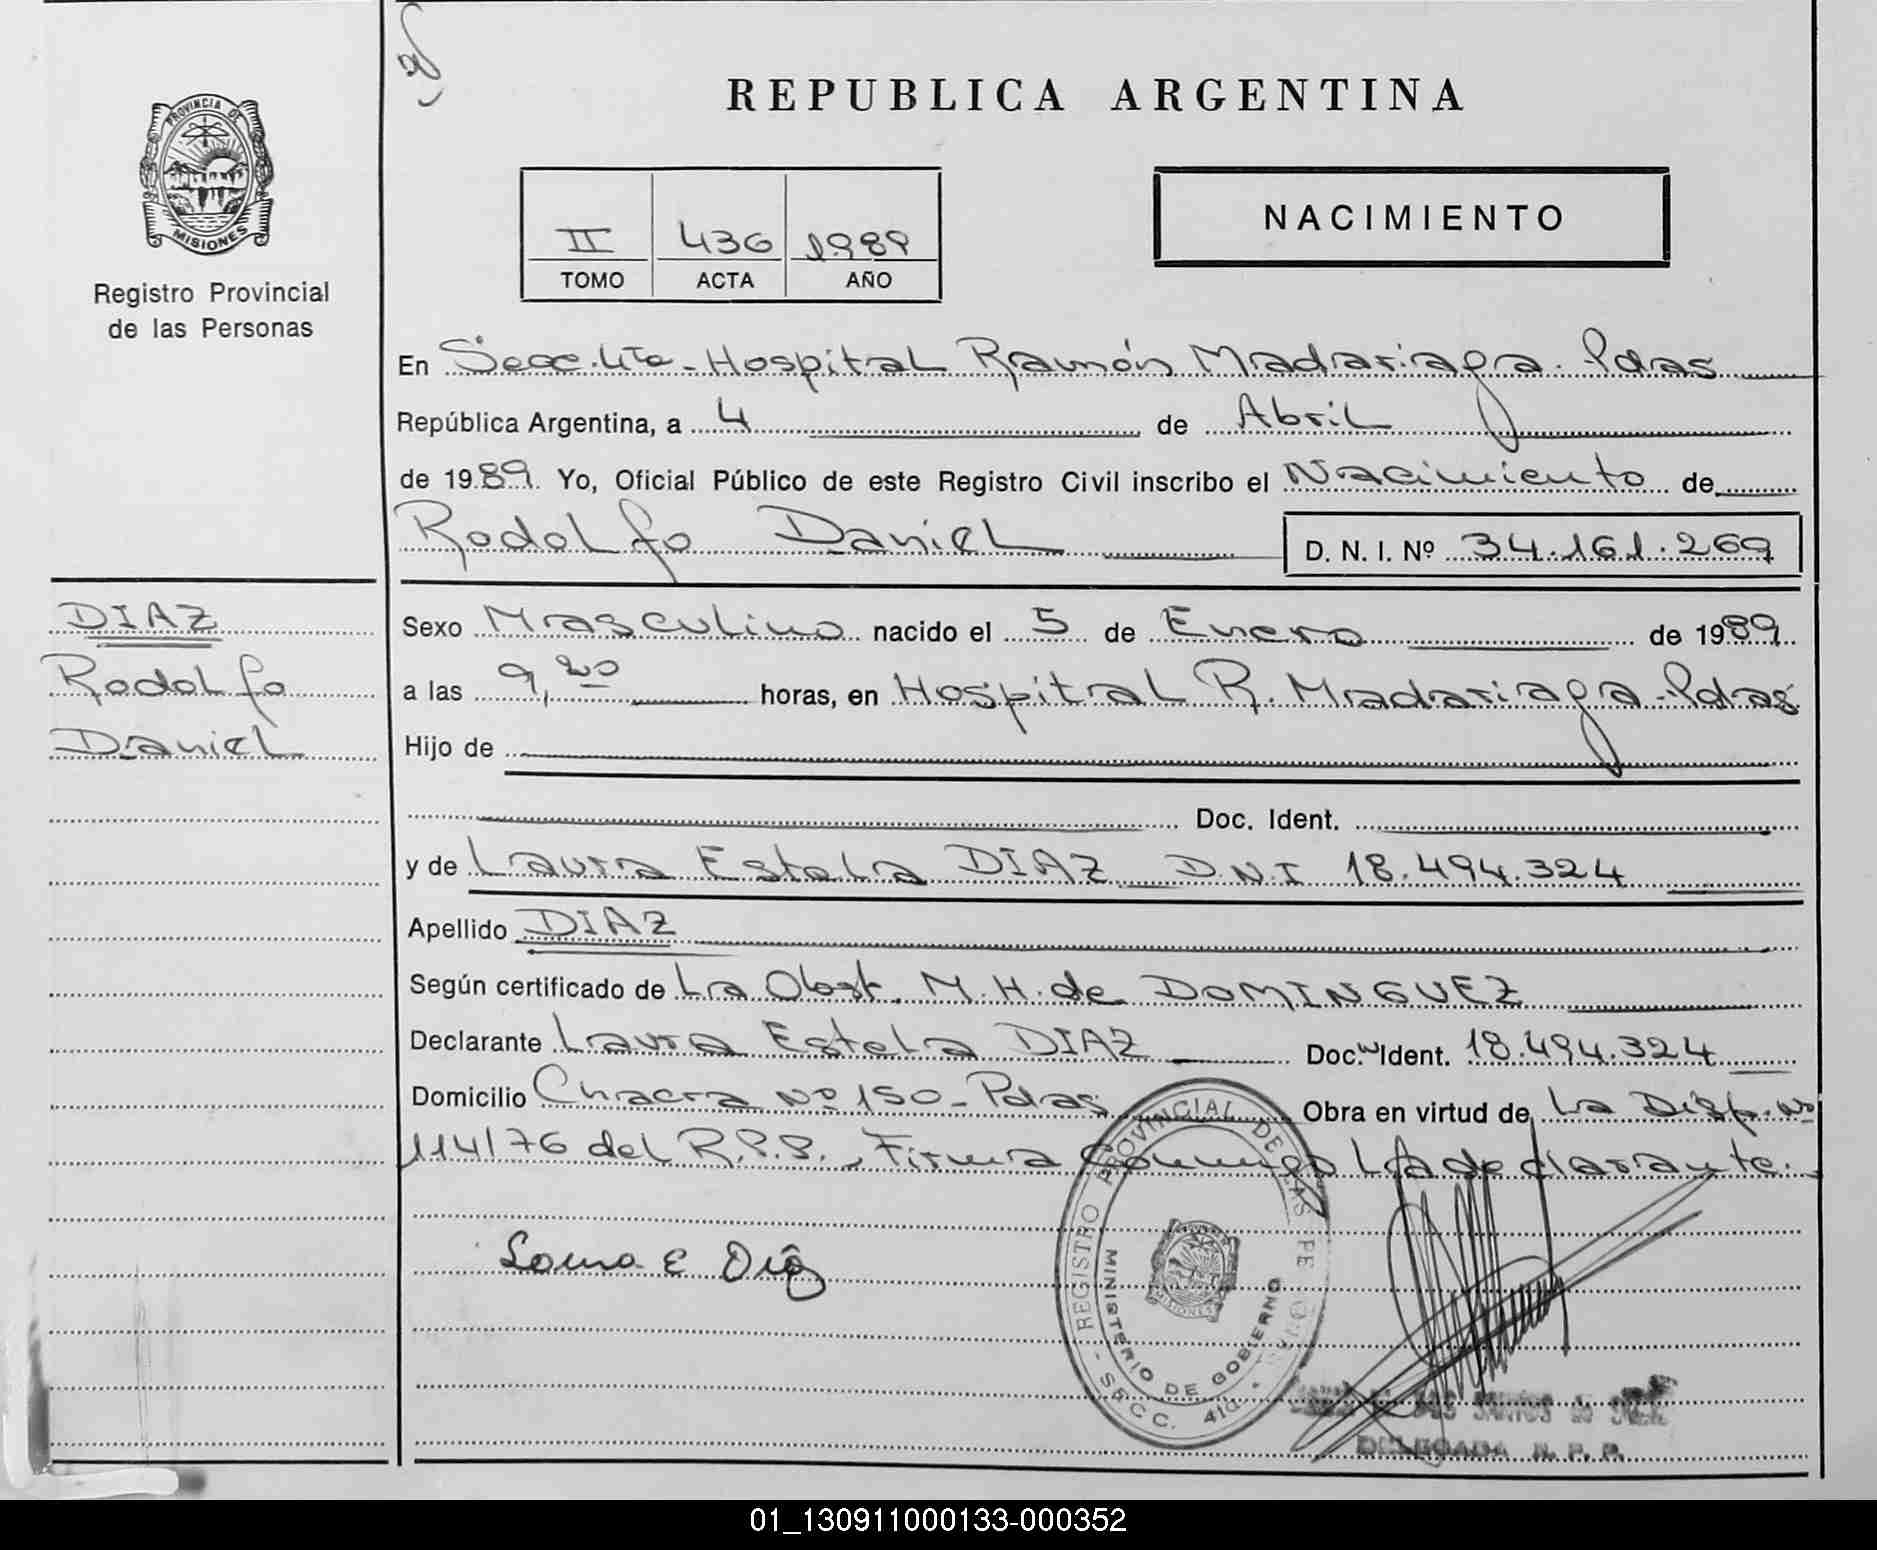 REPUBLICA ARGENTINA
PROVINCIA DE
MISIONES
Registro Provincial
de las Personas
II 436 1989
TOMO ACTA AÑO
NACIMIENTO
En Secc. 4ta - Hospital Ramón Madariaga. Pdas
República Argentina, a 4 de Abril
de 1989. Yo, Oficial Público de este Registro Civil inscribo el Nacimiento de
Rodolfo Daniel D. N. I. Nº 34.161.269
DIAZ
Rodolfo
Daniel
Sexo Masculino nacido el 5 de Enero de 1989
a las 9,20 horas, en Hospital R. Madariaga - Pdas
Hijo de
Doc. Ident.
y de Laura Estela DIAZ D.N.I 18.494.324
Apellido DIAZ
Según certificado de La Obst. M. H. de DOMINGUEZ
Declarante Laura Estela DIAZ Doc. Ident. 18.494.324
Domicilio Chacra Nº 150 - Pdas Obra en virtud de La Disp. Nº
114/76 del R.P.P., Firma Conmigo La declarante.
Laura E Diaz
- REGISTRO PROVINCIAL DE LAS PERSONAS - SECC. 4ta
MINISTERIO DE GOBIERNO
MISIONES
DOS SANTOS de
DELEGADA R. P. P.
01_130911000133-000352